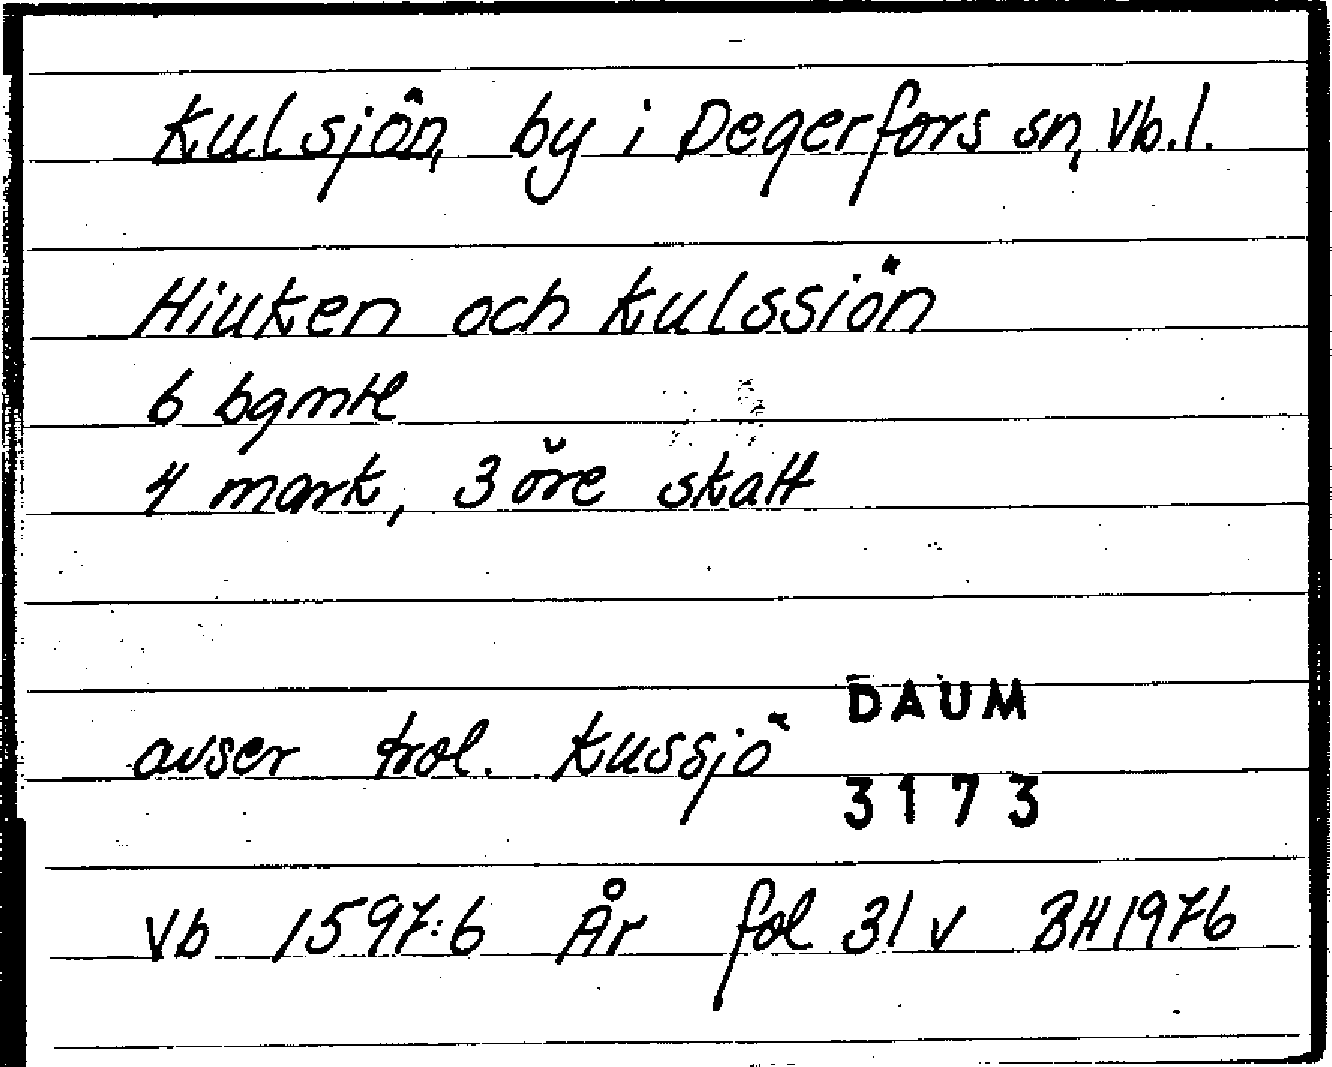 Kulsjön, by i Degerfors sn, Vb.l.
Hiuken och Kulssiön
6 bgmtl
4 mark, 3 öre skatt
DAUM
avser trol. Kussjö
3173
Vb 1597:6 År fol 31 v BH 1976